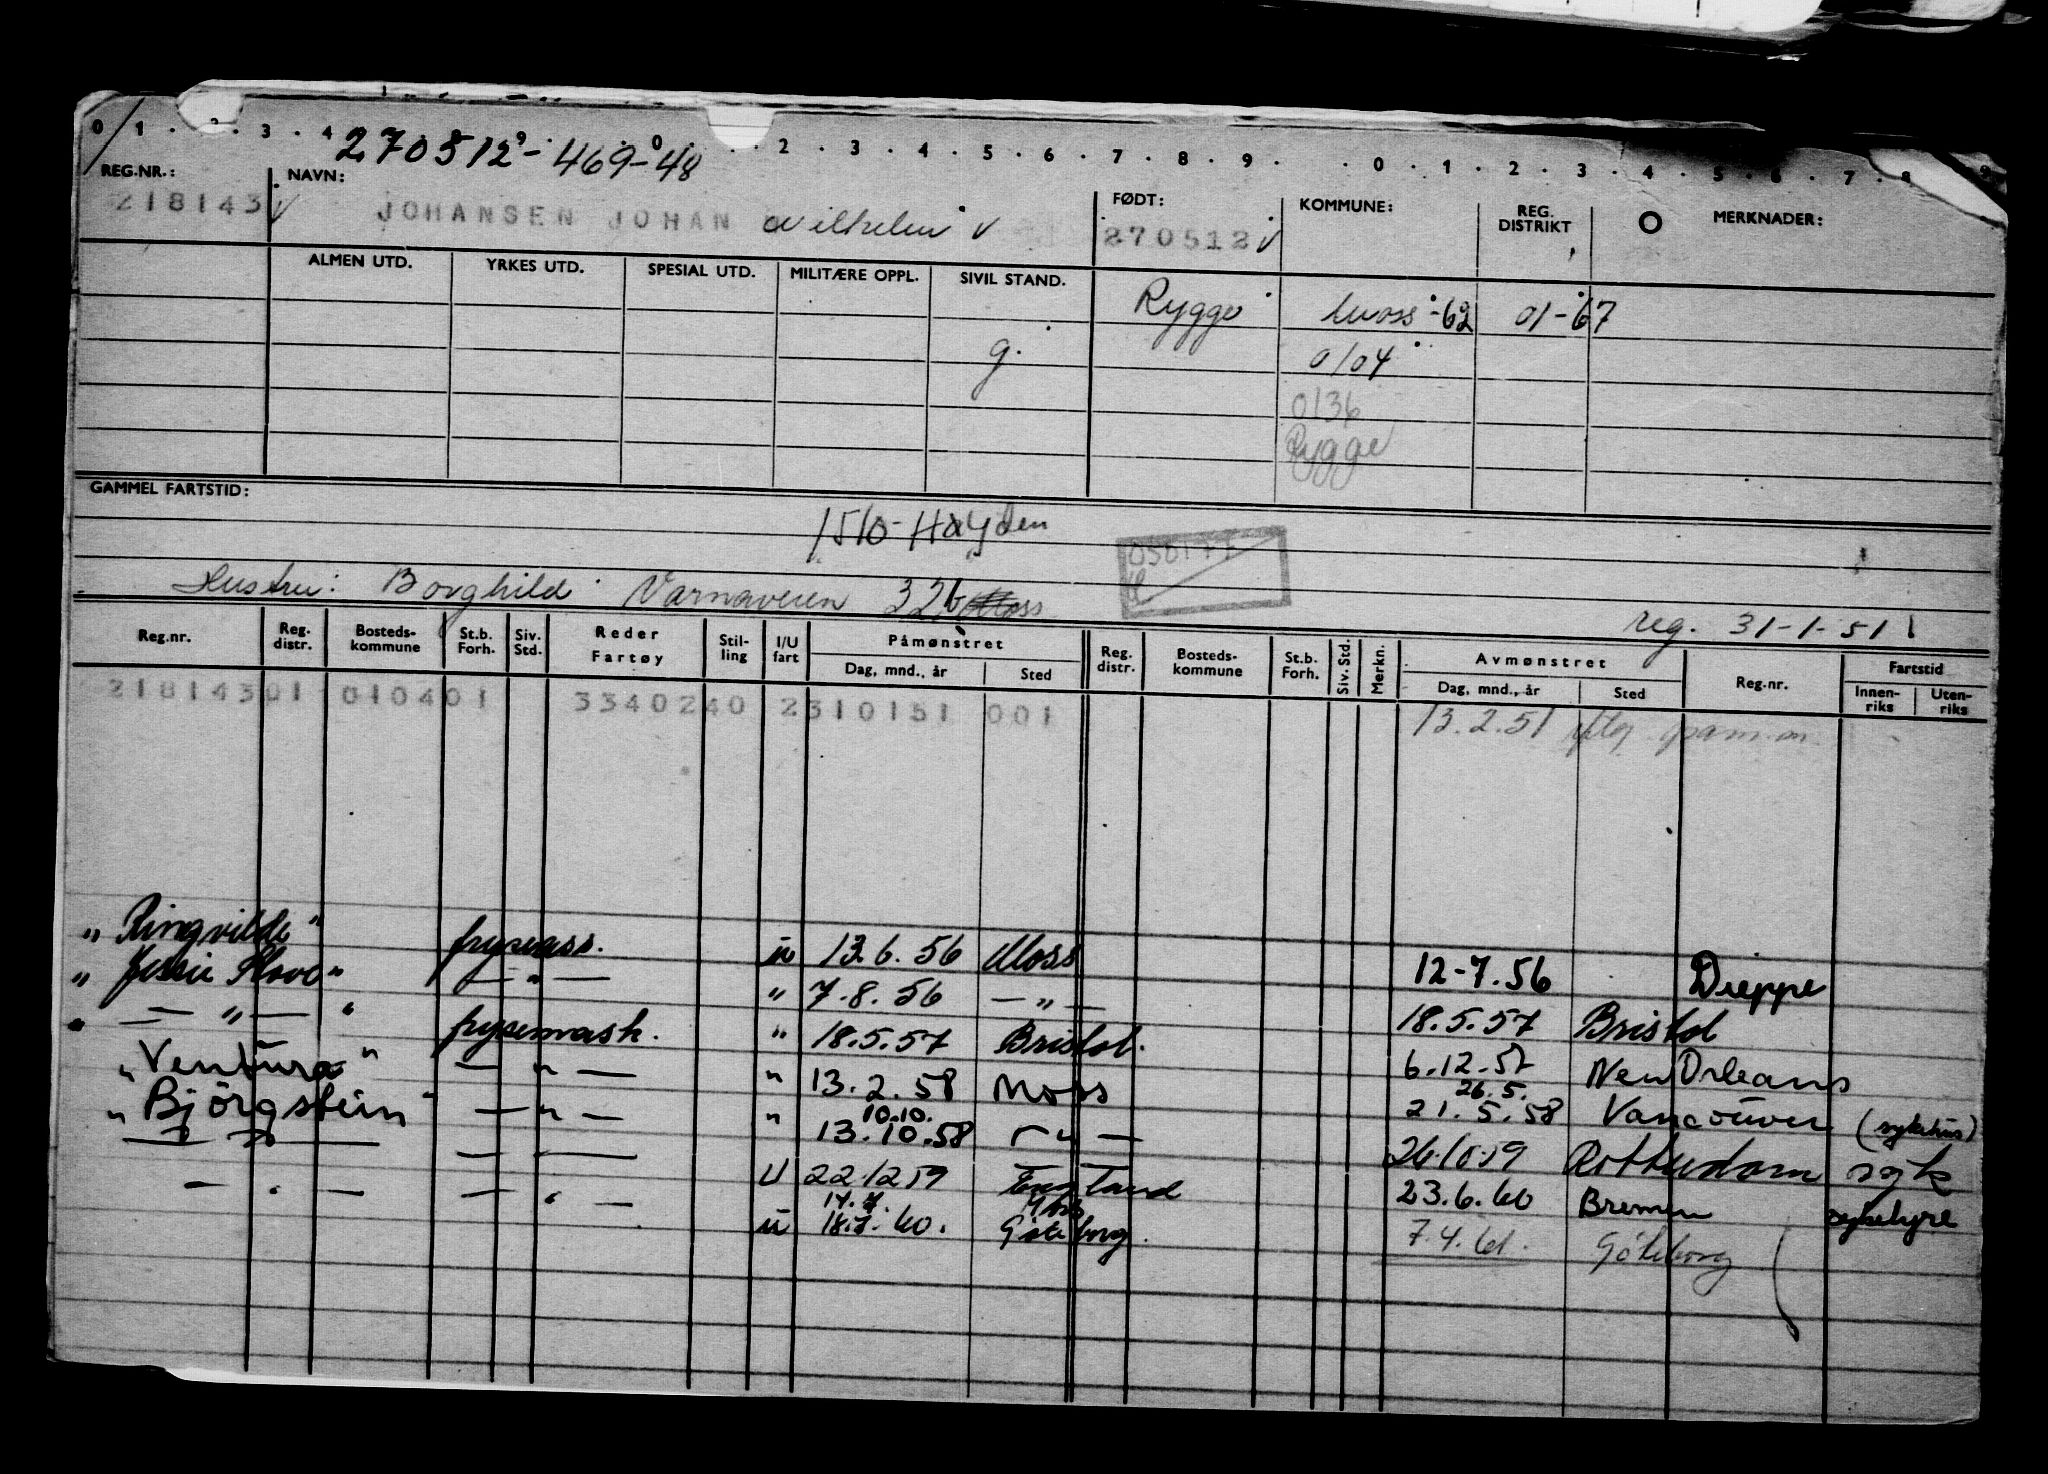 0 1 . 2 . 3 . 4 . 9 . 0 . . 2 . 3 . 4 . 5 . 6 . 7 . 8 . 9 . . 0 . 1 . 2 . 3 . 4 . 5 . 6 . 7 . 8 9
270512-469-48
REG.NR.: NAVN: FØDT: KOMMUNE: REG. DISTRIKT O MERKNADER:
218143 JOHANSEN JOHAN Wilhelm 270512
ALMEN UTD. YRKES UTD. SPESIAL UTD. MILITÆRE OPPL. SIVIL STAND.
Rygge Moss -62 01-67
g. 0104
0136
Rygge
GAMMEL FARTSTID:
1510-Høyden
050177
Hustru: Borghild Varnaveien 32b Moss
reg. 31-1-51
Reg.nr. Reg. distr. Bosteds- kommune St.b. Forh. Siv. Std. Reder Fartøy Stil- ling I/U fart Påmønstret Reg. distr. Bosteds- kommune St.b. Forh. Siv. Std. Merkn. Avmønstret Reg.nr. Fartstid
Dag, mnd., år Sted Dag, mnd., år Sted Innen- riks Uten- riks
21814301 010401 3340240 2310151 001 13.2.51
" Ringvilde" frysеass. u 13.6.56 Moss 12-7.56 Dieppe
" Jessie Stove" — " — " 7.8.56 — " — 18.5.57 Bristol
" — " — " frysemask. " 18.5.57 Bristol. 6.12.57 New Orleans
"Ventura" — " — " 13.2.58 Moss 26.5. 21.5.58 Vancouver (sykehus)
" Björgstein" — " — " 10.10. 13.10.58 — " — 26.10.59 Rotterdam syk
— " — — " — U 22.12.59 England 23.6.60 Bremen
— " — — " — u 14.7. 18.7.60. Göteborg. 7.4.61. Göteborg